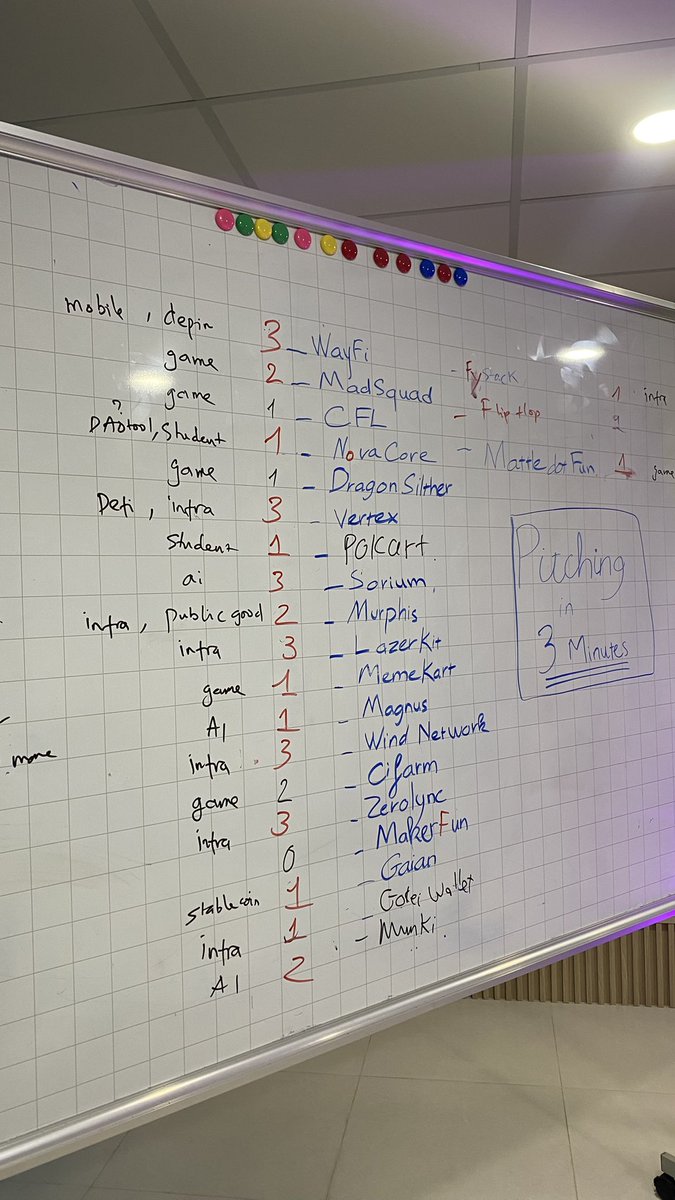 mobile , depin 3 – WayFi
game 2 – MadSquad
game 1 – CFL
?
DAOtool, Student 1 – NovaCore
game 1 – DragonSilther
Defi , infra 3 – Vertex
Student 1 – POKart
ai 3 – Sorium
infra , public good 2 – Murphis
infra 3 – LazerKit
game 1 – MemeKart
AI 1 – Magnus
infra 3 – Wind Network
game 2 – Cifarm
infra 3 – Zerolync
0 – MakerFun
stablecoin 1 – Gaian
infra 1 – Wallet
AI 2 – Munki
– Fystack 1 infra
– Flip flop
– MattledotFun 1 game
Pitching
in
3 Minutes
more